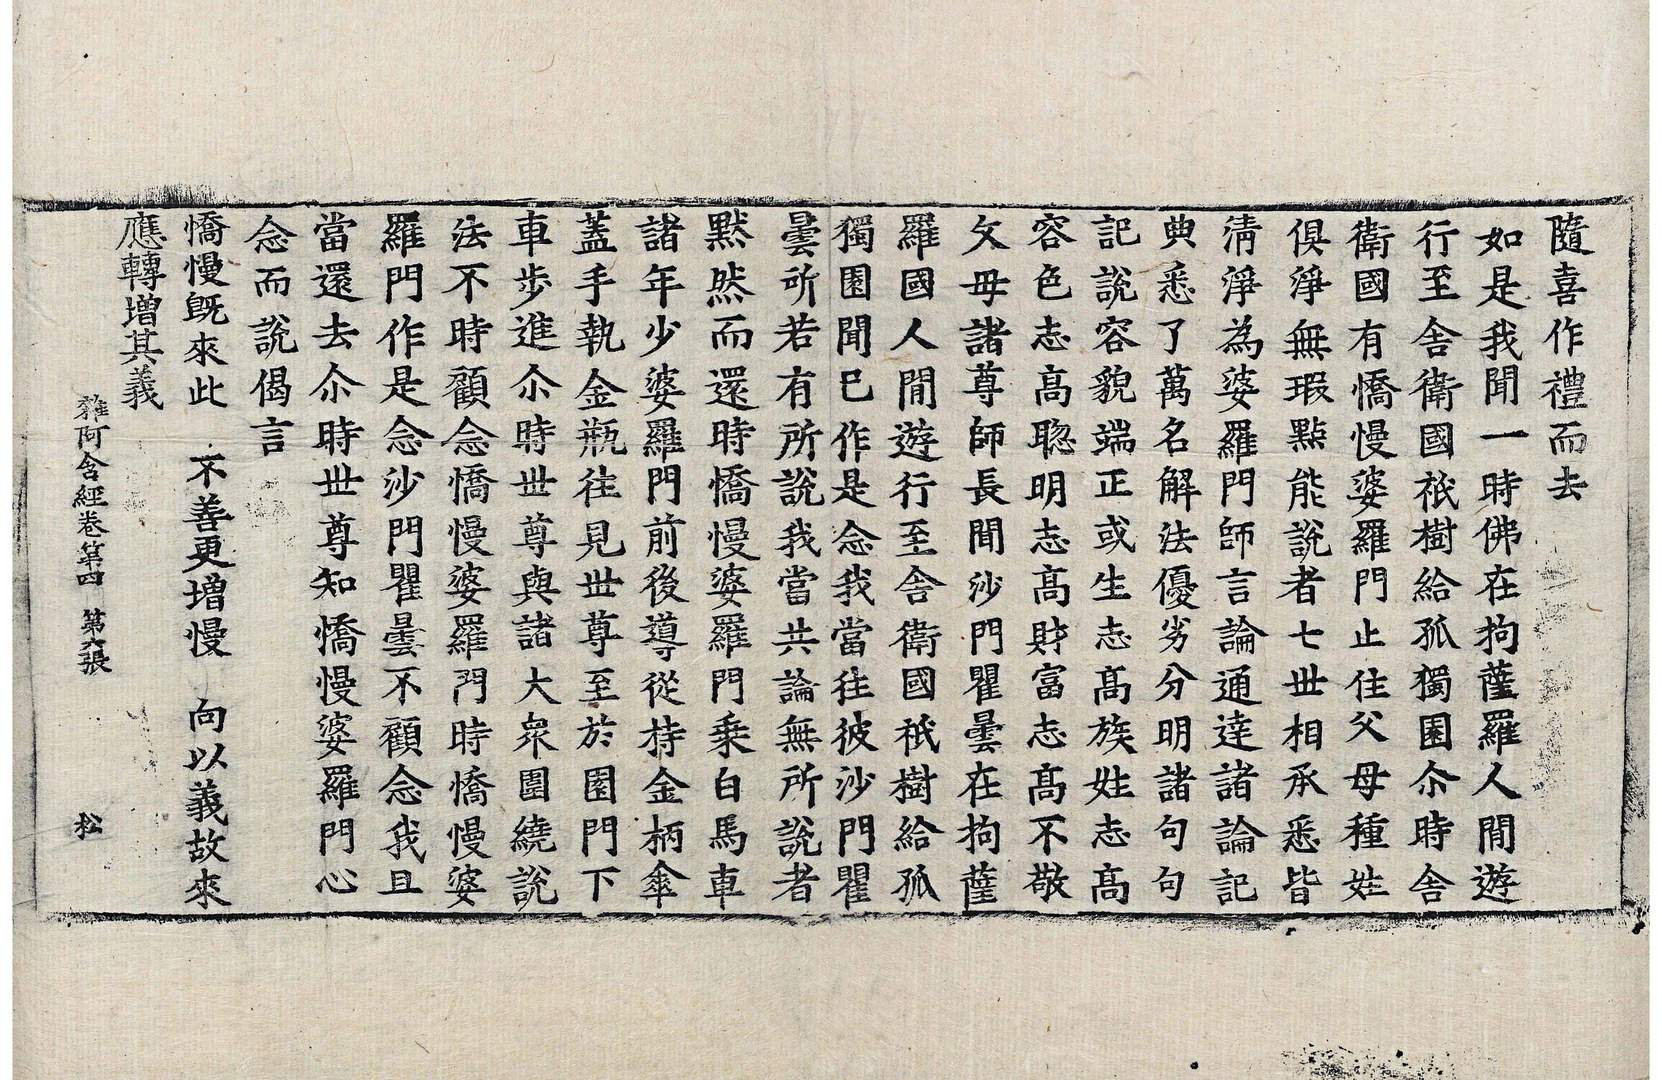 隨喜作禮而去
如是我聞一時佛在拘薩羅人閒遊
行至舍衛國祇樹給孤獨園尒時舍
衛國有憍慢婆羅門止住父母種姓
俱淨無瑕點能說者七世相承悉皆
淸淨為婆羅門師言論通達諸論記
典悉了萬名解法優劣分明諸句句
記說容貌端正或生志高族姓志高
容色志高聦明志高財富志高不敬
父母諸尊師長聞沙門瞿曇在拘薩
羅國人閒遊行至舍衛國祇樹給孤
獨園聞已作是念我當往彼沙門瞿
曇所若有所說我當共論無所說者
默然而還時憍慢婆羅門乗白馬車
諸年少婆羅門前後導從持金柄傘
蓋手執金瓶往見世尊至於園門下
車步進尒時世尊與諸大衆圍繞說
法不時顧念憍慢婆羅門時憍慢婆
羅門作是念沙門瞿曇不顧念我且
當還去尒時世尊知憍慢婆羅門心
念而說偈言
憍慢旣來此 不善更增慢 向以義故來
應轉增其義
雜阿含經卷第四 第六張 松